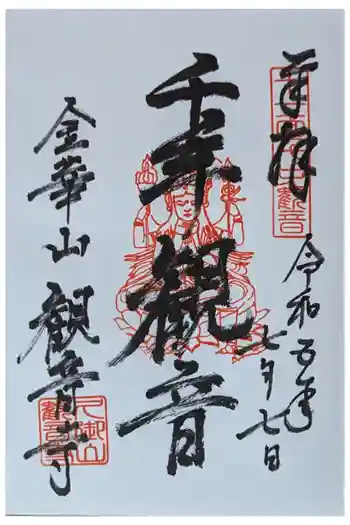 奉拝
令和五年
七月七日
千手観音
金華山
観音寺